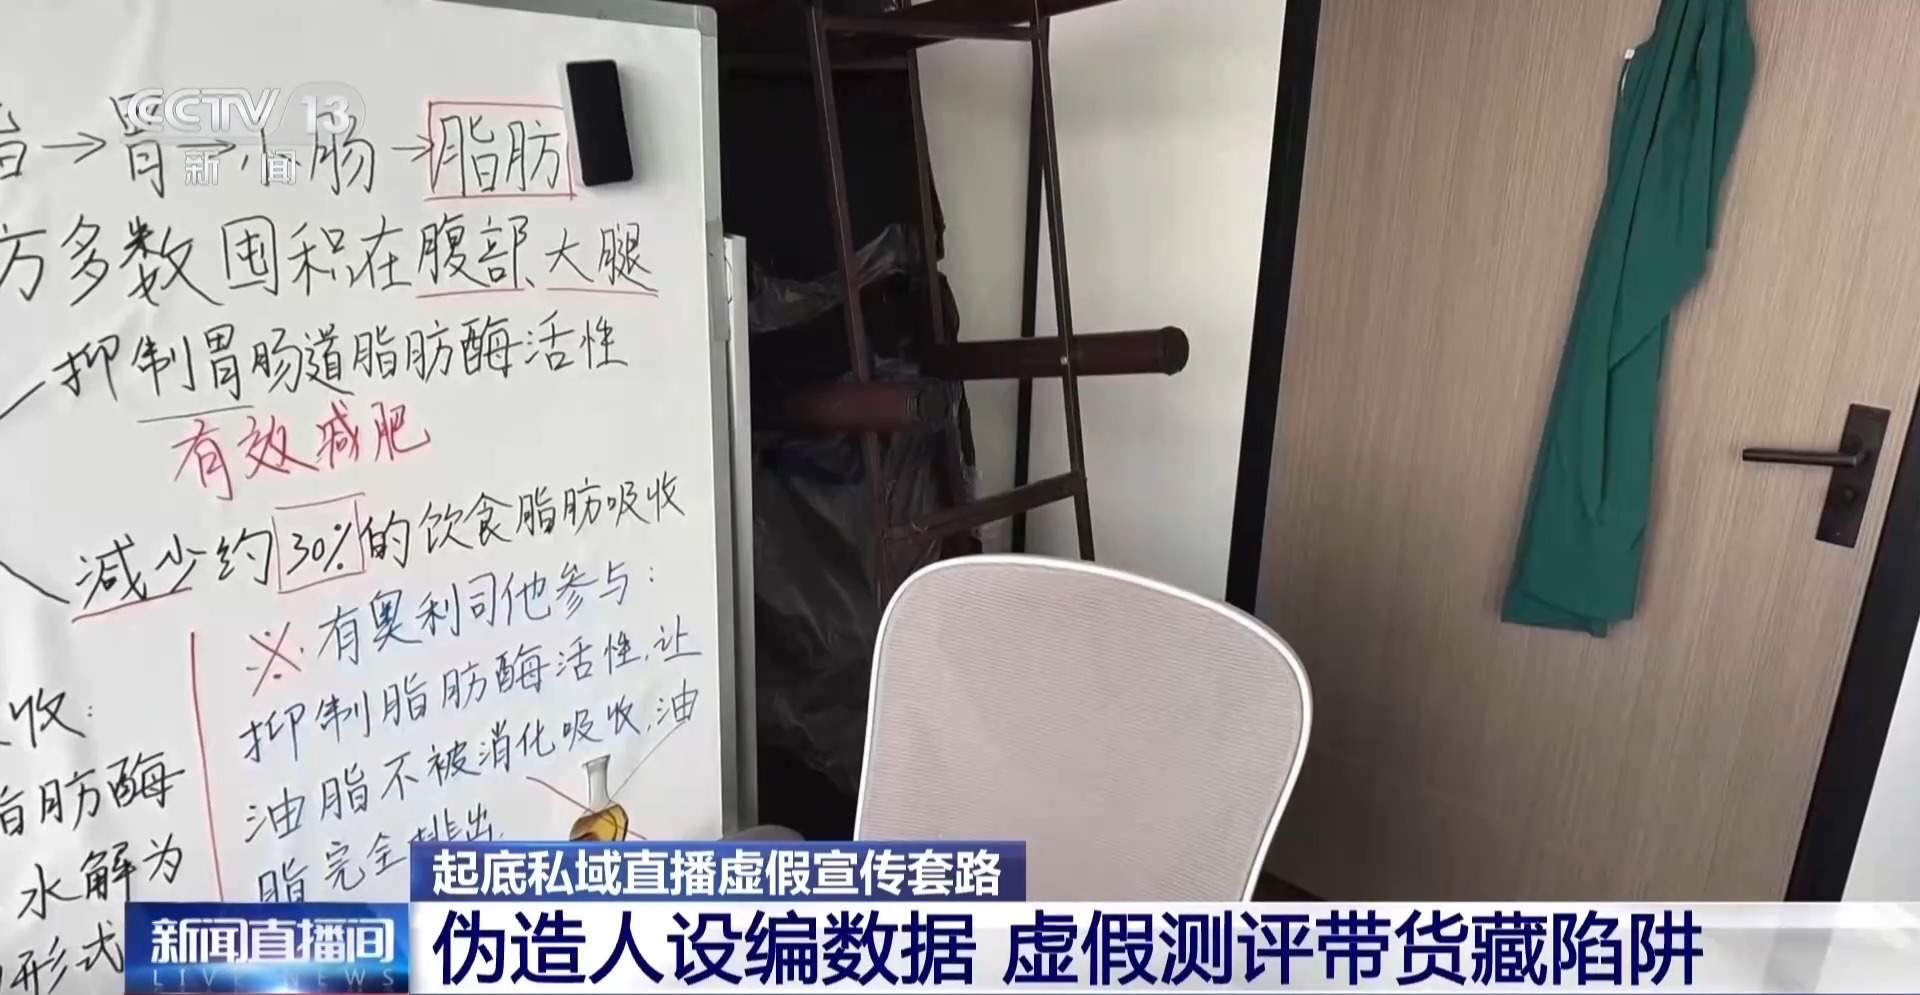 CCTV 13
新闻
→胃→小肠→脂肪
方多数囤积在腹部、大腿
抑制胃肠道脂肪酶活性
有效减肥
减少约30%的饮食脂肪吸收
※有奥利司他参与：
抑制脂肪酶活性,让
油脂不被消化吸收,油
脂完全排出.
收：
脂肪酶
水解为
形式
起底私域直播虚假宣传套路
新闻直播间
LIVE NEWS
伪造人设编数据 虚假测评带货藏陷阱